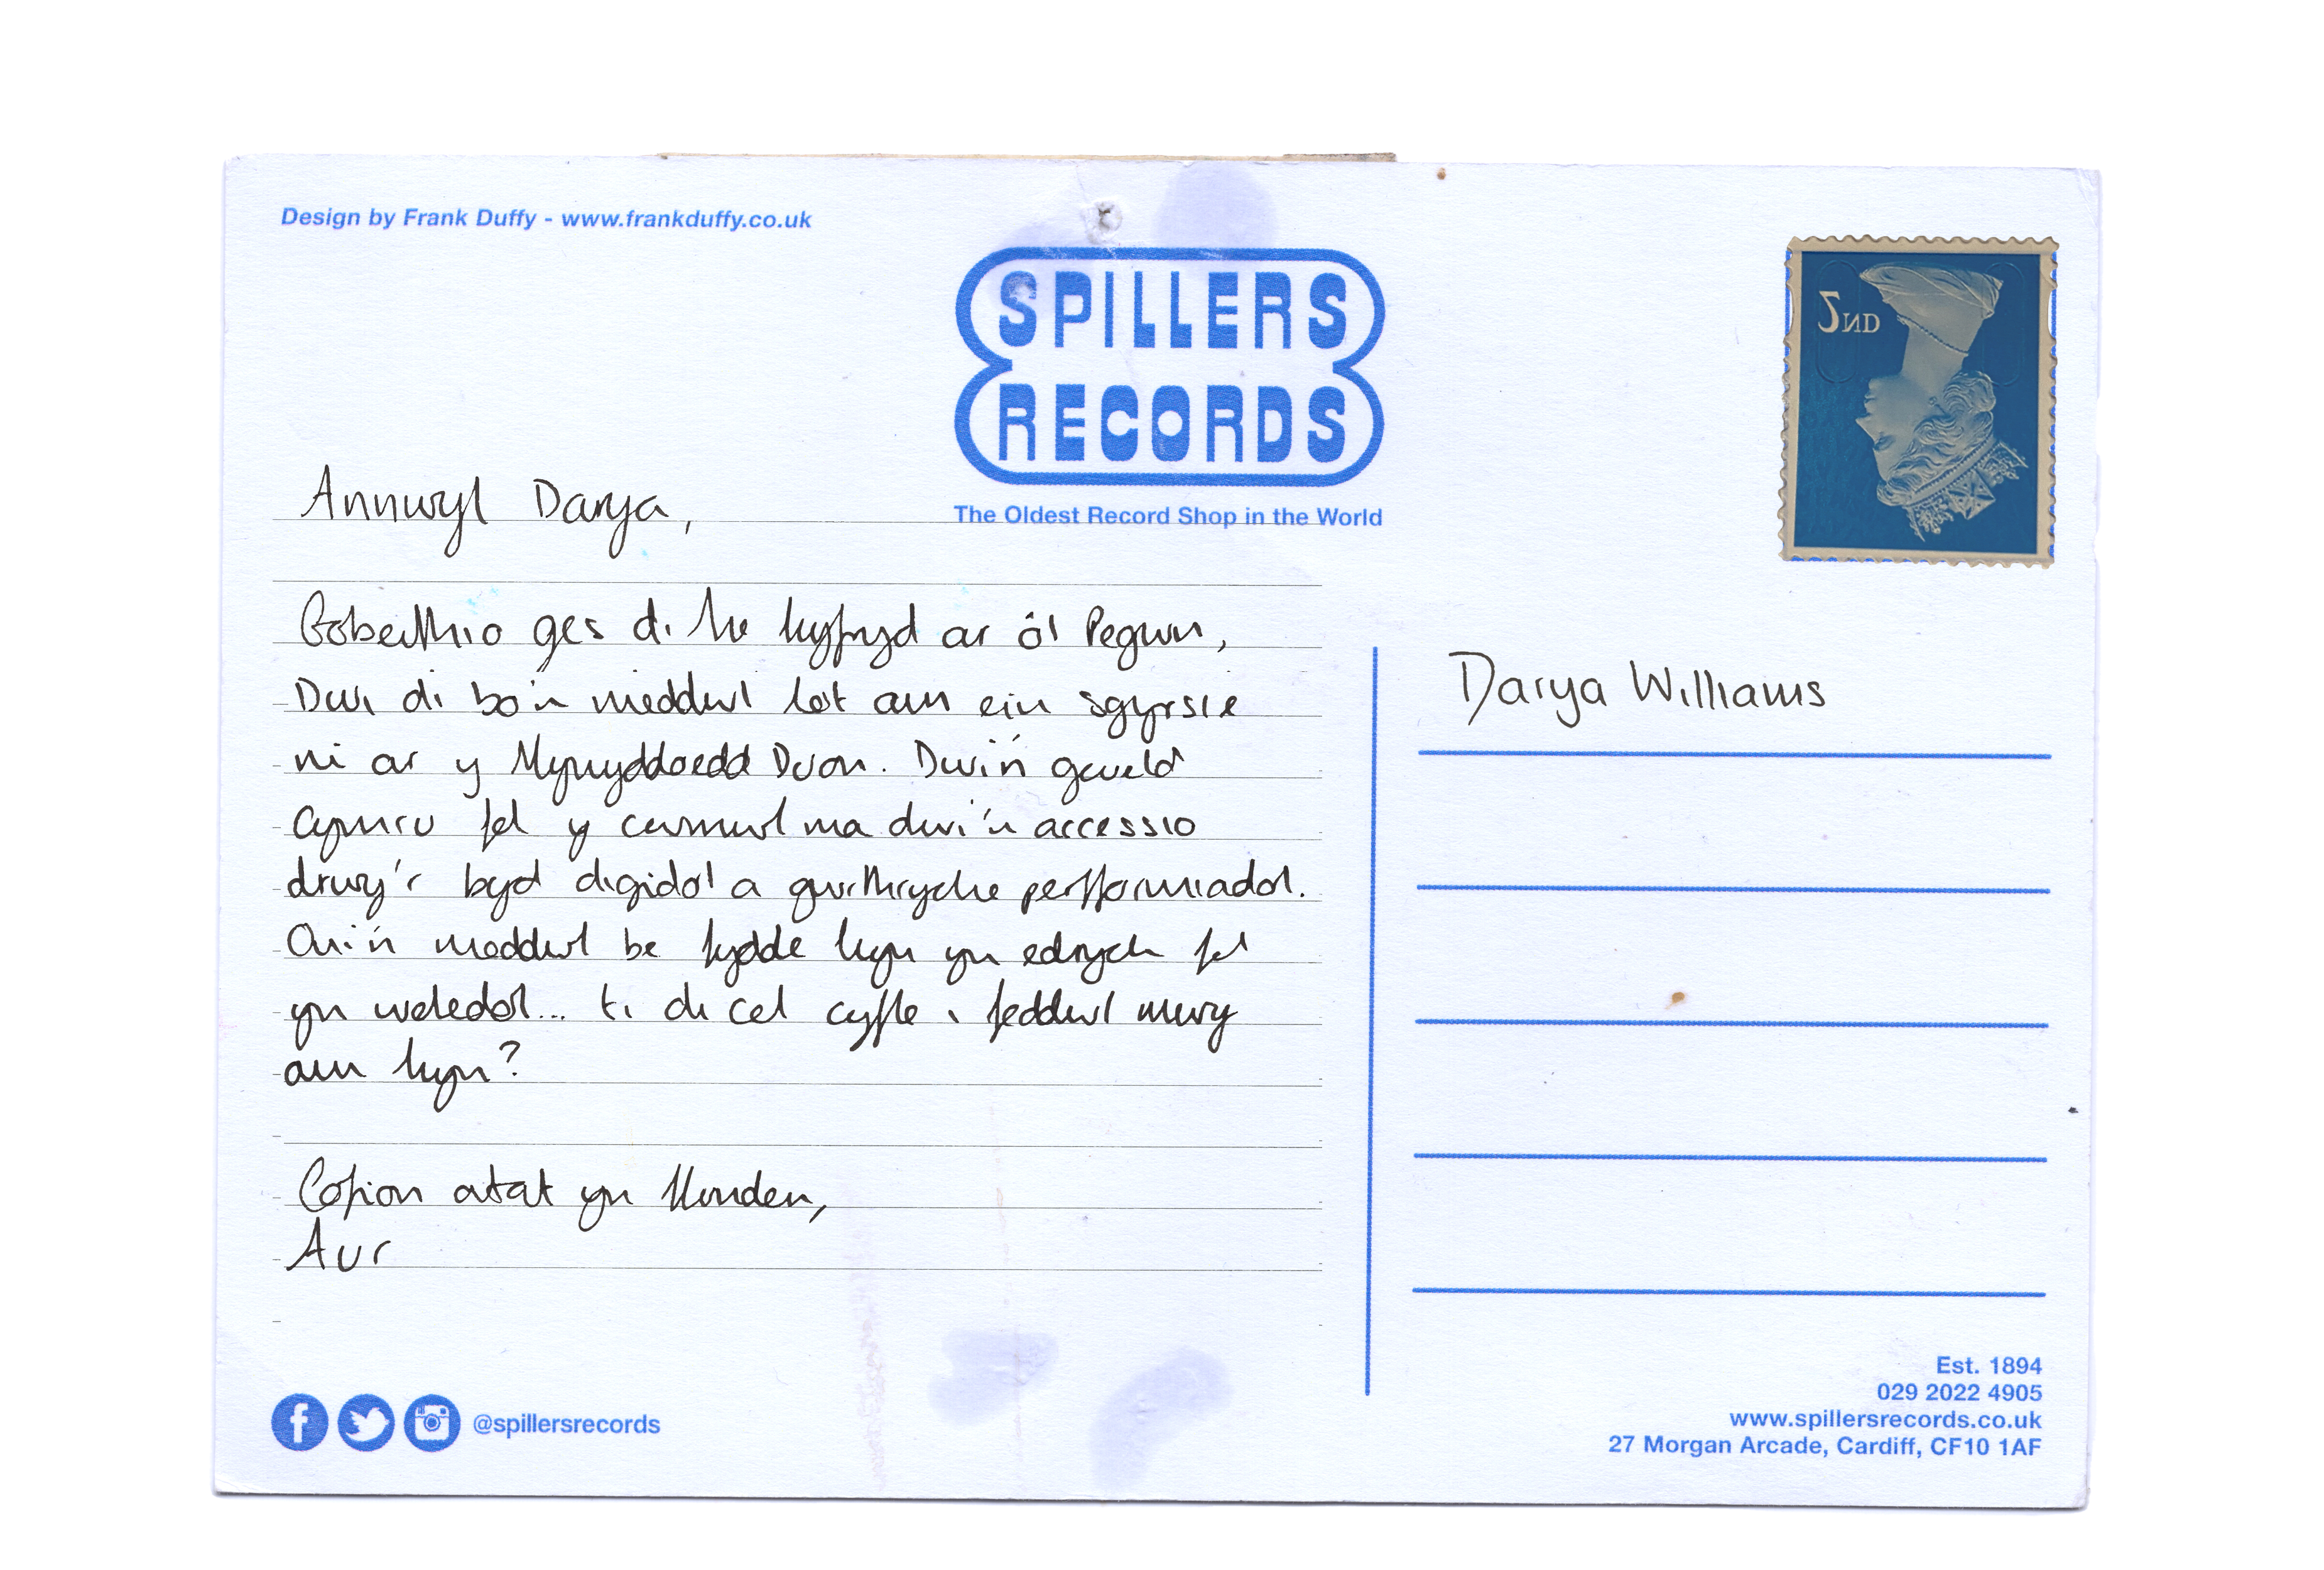 Design by Frank Duffy - www.frankduffy.co.uk
SPILLERS
RECORDS
The Oldest Record Shop in the World
2ND
Annwyl Darya,
Gobeithio ges di hwyl hyfryd ar ôl Pegwn,
Dwi di bo'n meddwl lot am ein sgyrsie
ni ar y Mynyddoedd Duon. Dwi'n gweld
Cymru fel y cwmwl ma dwi'n accessio
drwy'r byd digidol a gweithryche perfformiadol.
On i'n meddwl be fydde hyn yn edrych fel
yn weledol... ti di cel cyfle i feddwl mwy
am hyn?
Cofion atat yn Llunden,
Aur
Darya Williams
@spillersrecords
Est. 1894
029 2022 4905
www.spillersrecords.co.uk
27 Morgan Arcade, Cardiff, CF10 1AF